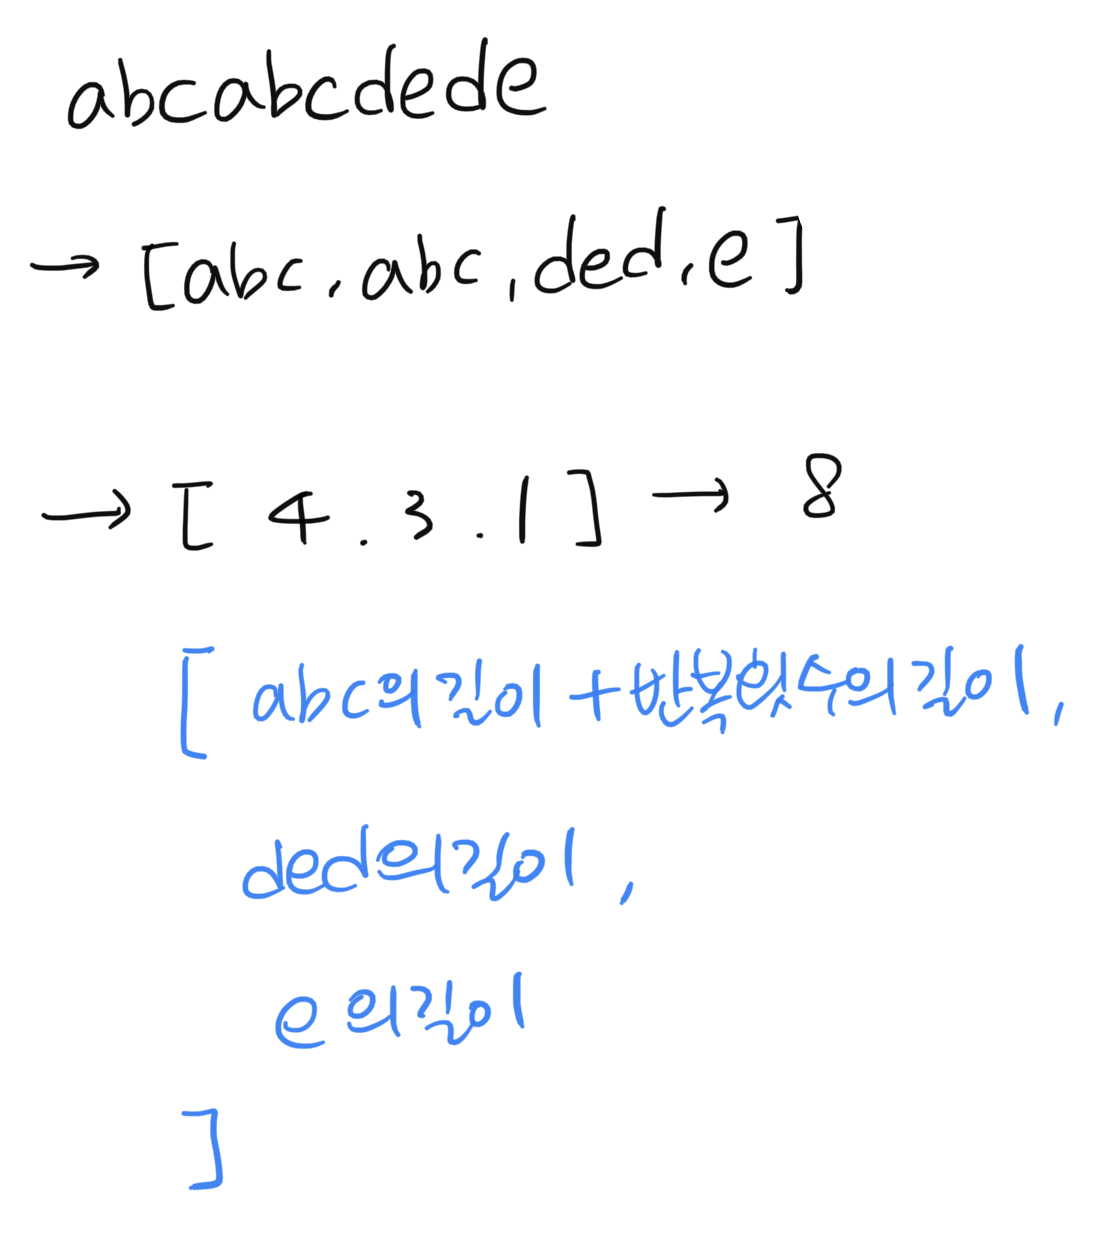 abcabcdede
→ [abc, abc, ded, e]
→ [ 4 . 3 . 1 ] → 8
[ abc의길이 + 반복횟수의길이,
ded의길이,
e의길이
]